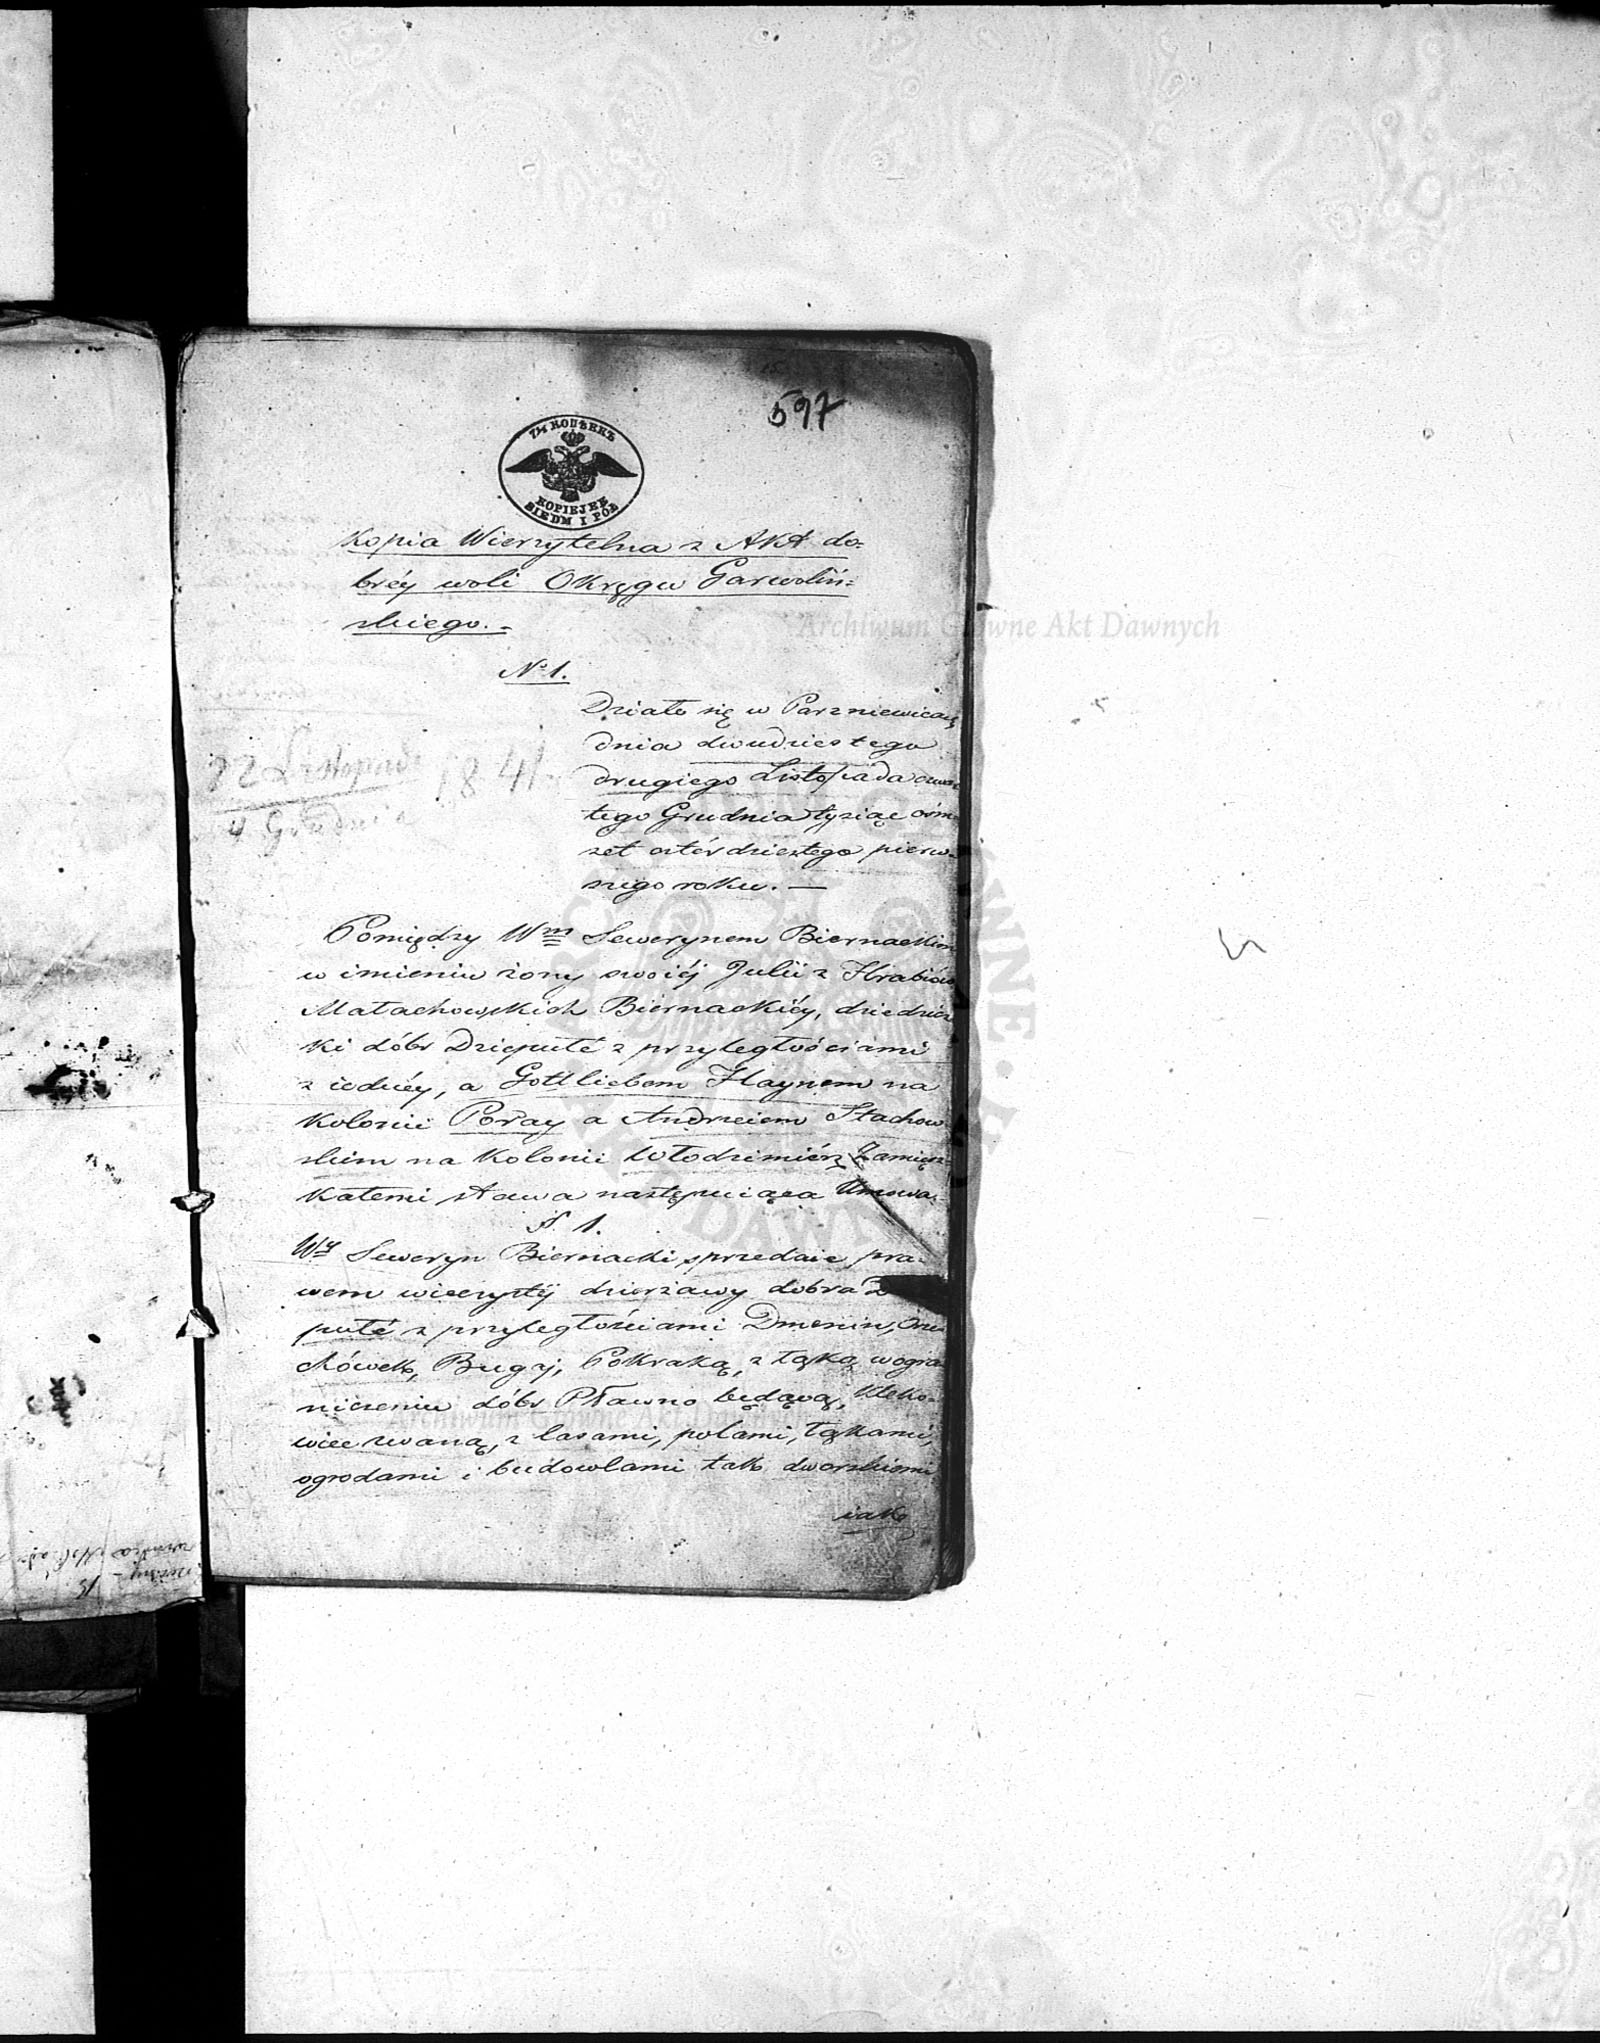 597
7½ КОПѢЕКЪ
KOPIEJEK
SIEDM I PÓŁ
Kopia Wierzytelna z Akt do=
bréy woli Okręgu Garwoliń=
skiego. =
No 1.
Działo się w Parzniewicach
dnia dwudziestego
drugiego Listopada czwar=
tego Grudnia tysiąc ośm=
set czterdziestego pierw=
szego roku. —
22 Listopada 1841
4 Grudnia
Pomiędzy Wm Sewerynem Biernackim
w imieniu żony swoiéj Julii z Hrabiów
Małachowskich Biernackiéy, dziedzicz
ki dóbr Dziepułć z przyległościami
z iednéy, a Gottliebem Haynem na
Kolonii Poray a Andrzeiem Stachow
skim na Kolonii Włodzimiérz Zamiesz=
kałemi stawa następuiąca Umowa.
§ 1.
Wy Seweryn Biernacki sprzedaie pra=
wem wieczystéj dzierżawy dobra
pułć z przyległościami Dmenin, Orze
chówek, Bugaj, Pokraką, z łąką wogra=
niczeniu dóbr Pławno będącą, Kleko=
wiec zwaną, z lasami, polami, łąkami,
ogrodami i budowlami tak dworskiemi
iako
Archiwum Główne Akt Dawnych
Archiwum Główne Akt Dawnych